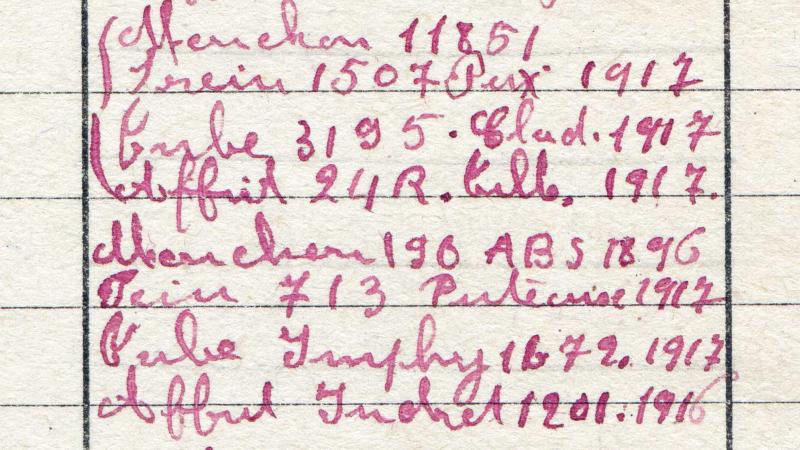 Manchon 11851
Frein 1507 Pux 1917
Tube 3195. Clad. 1917
Affut 24 R. Kilb. 1917.
Manchon 190 ABS 1896
Frein 713 Puteaux 1917
Tube Imphy 1672. 1917
Affut Indret 1201. 1916